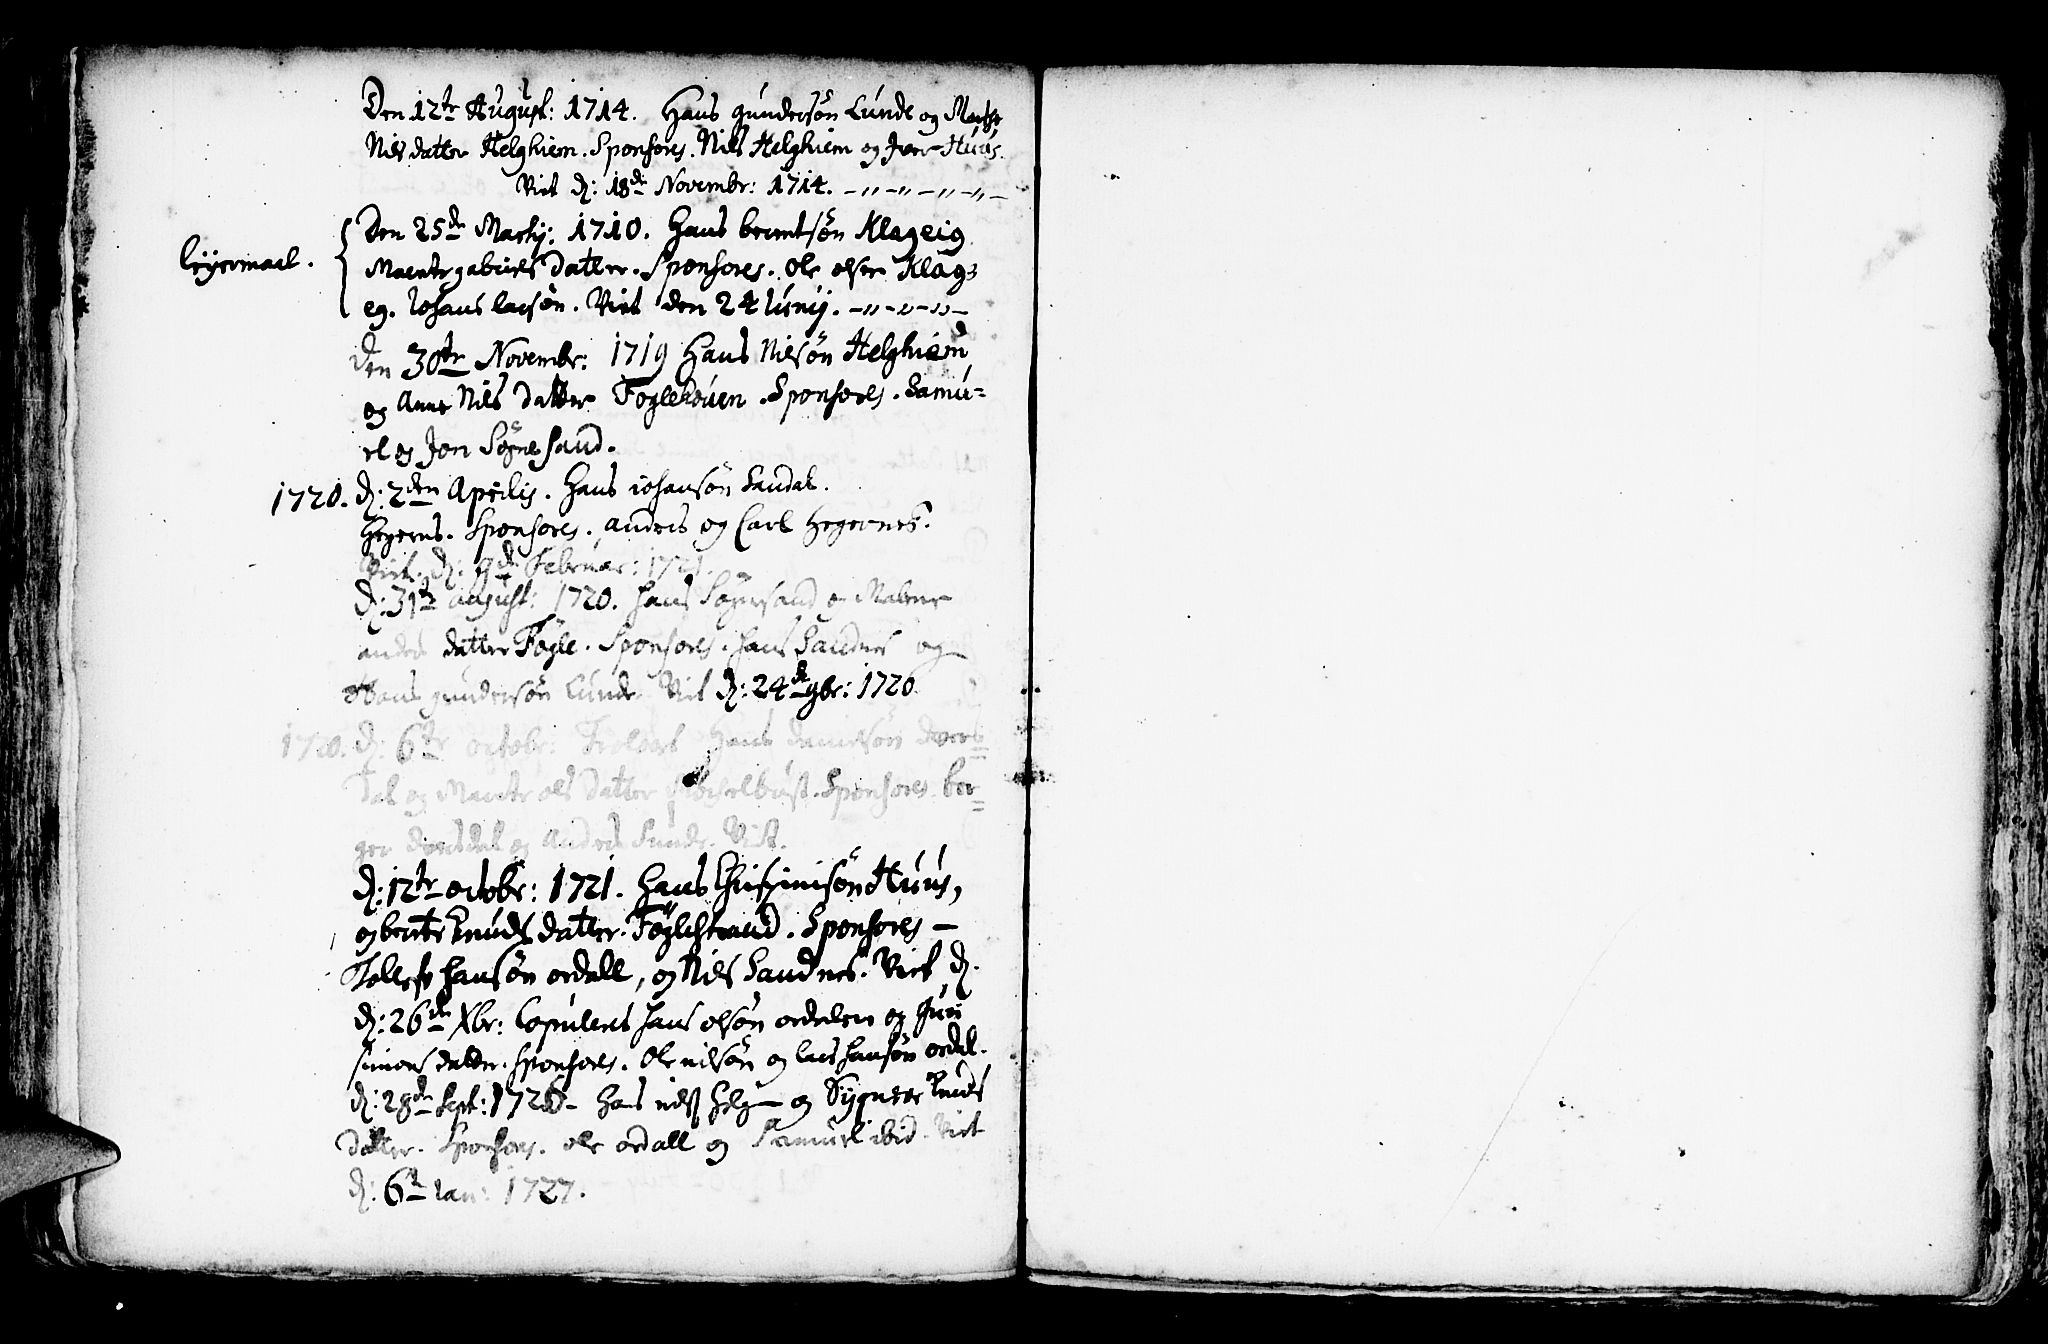 Den 12te August: 1714. Hans gundersøn Lunde og Marthe
Nils datter Helghiem. Sponsores. Nils Helghiem og Iver Huus.
Viet d: 18de Novembr: 1714.
Leyermaal. Den 25de Martij: 1710. Hans berentsøn Klageig
Marite gabriels datter. Sponsores. Ole olsen Klag=
eg. Iohans larsøn. Viet den 24 Iunij.
Den 30te Novembr: 1719 Hans Nilsøn Helghiem
og Anne Nils datter Foglehouen. Sponsores. Samu=
el og Jon Søgnesand.
1720. d: 2den Aprilis. Hans iohansøn Sandal.
Hegerns. Sponsores. anders og Carl Hegernes.
Viet. d: 9de Februar: 1721.
d: 31te august: 1720. Hans Søgnesand og Malene
anders datter Fögle. Sponsores. Hans Sandnes og
Hans gundersøn Lunde. Viet d: 24de 9br: 1720.
1720. d: 6te octobr: Hans danielsøn Dvers=
dal og Marite ols datter Sponsores. ber=
ger dversdal og Anders Sunde. Viet.
d: 12te octobr: 1721. Hans Christensøn Huus,
og berte Knuds datter. Föglestrand. Sponsores
Tollef hansøn ordall, og Nils Sandnes. Viet d.
d: 26de Xbr: Copuleret hans olsøn ordalen og
simons datter. Sponsores. Ole nilsøn og lars hansøn ordal.
d: 28de Sept: 1726 Hans nilss Helg og Sygnere Knuds
datter. Sponsores. ole ordall og Samuel ibid. Viet
d: 6te Ian: 1727.